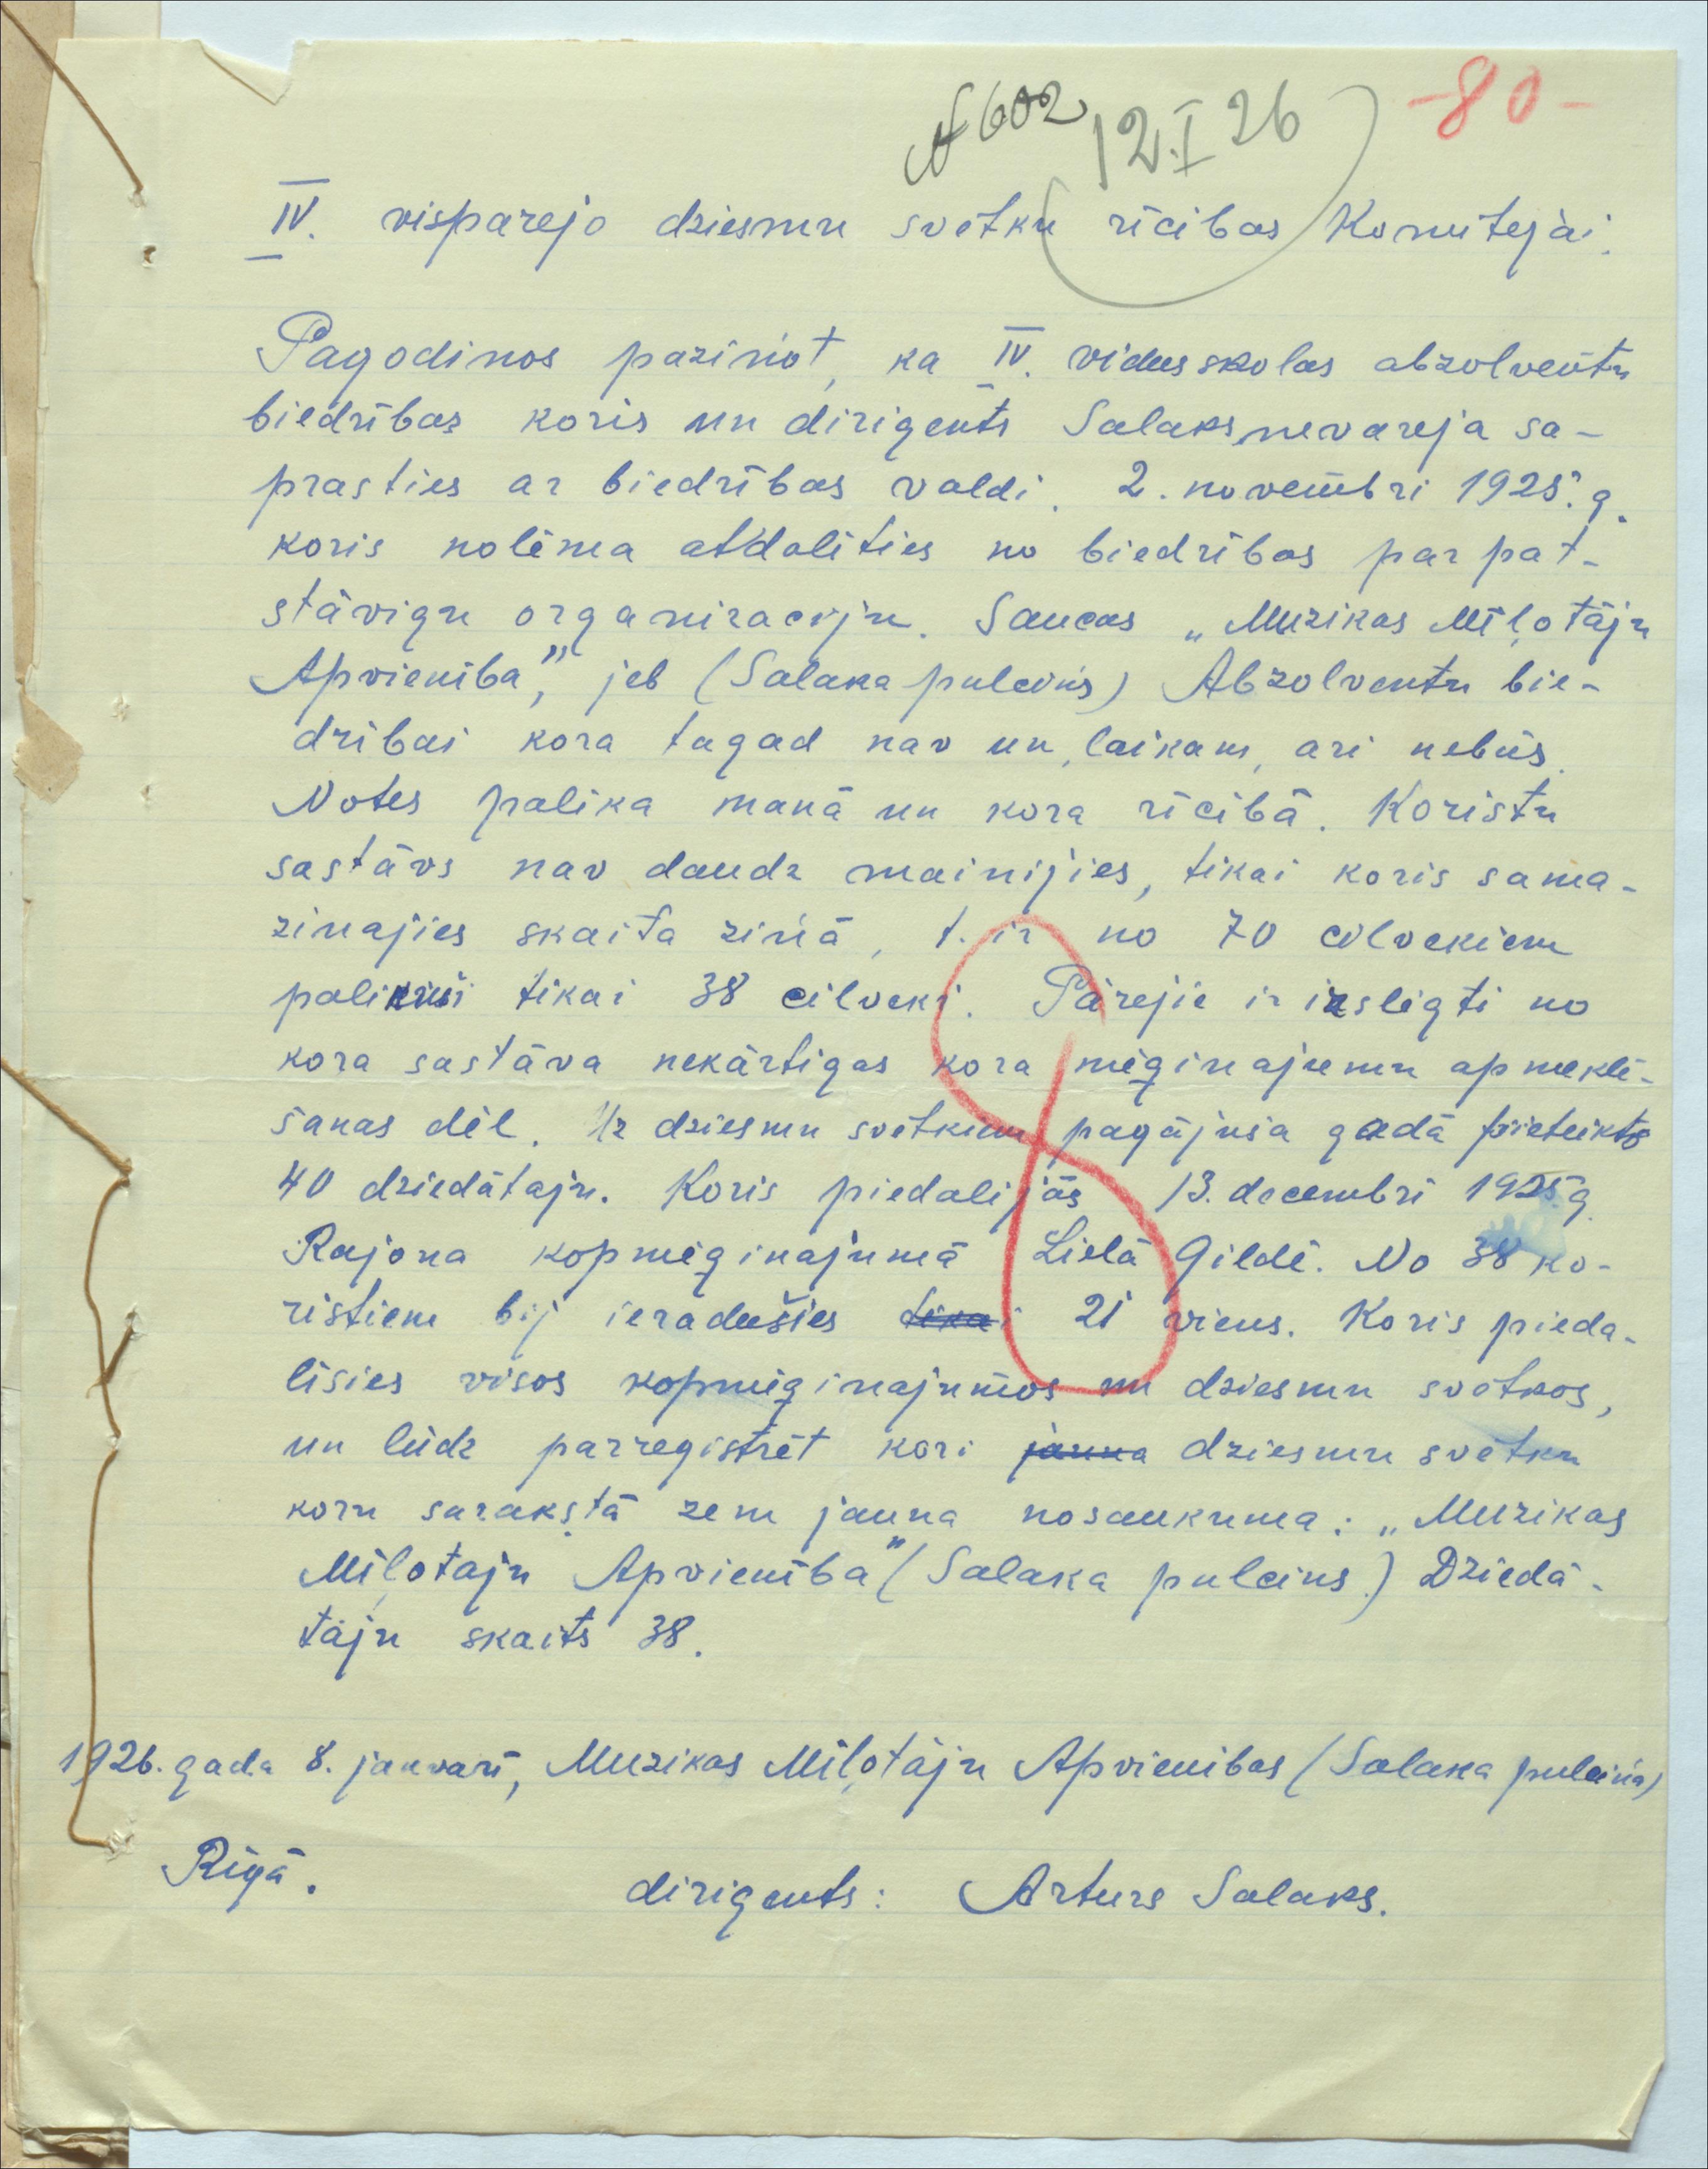 № 602 12.I 26 -80-
IV. visparejo dziesmu svētku rīcības Komitejai.
Pagodinos paziņot, ka IV. vidusskolas abzolventu
biedrības koris un dirigents Salaks, nevareja sa-
prasties ar biedrības valdi. 2. novembri 1925. g.
koris nolēma atdalīties no biedrības par pat-
stāvigu organizaciju. Saucas „Muzikas Mīļotāju
Apvienība", jeb (Salaka pulciņš) Abzolventu bie-
drībai kora tagad nav un, laikam, ari nebūs.
Notes palika manā un kora rīcībā. Koristu
sastāvs nav daudz mainijies, tikai koris sama-
zinajies skaita ziņā, t. ir no 70 cilvekiem
palikuši tikai 38 cilveki. Pārejie ir izslēgti no
kora sastāva nekārtigas kora mēģinajumu apmeklē-
šanas dēl. Uz dziesmu svētkiem pagājuša gadā pieteikts
40 dziedātaju. Koris piedalijās 13. decembri 1925. g.
Rajona kopmēģinajumā Lielā Gildē. No 38 ko-
ristiem bij ieradušies tikai 21 viens. Koris pieda-
līsies visos kopmēģinajumos un dziesmu svētkos,
un lūdz parreģistrēt kori jauna dziesmu svētku
koru sarakstā zem jauna nosaukuma: „Muzikas
Mīļotaju Apvienība" (Salaka pulciņš.) Dziedā-
tāju skaits 38.
1926. gada 8. janvarī, Muzikas Mīļotāju Apvienibas (Salaka pulciņa)
Rīgā.
dirigents: Arturs Salaks.